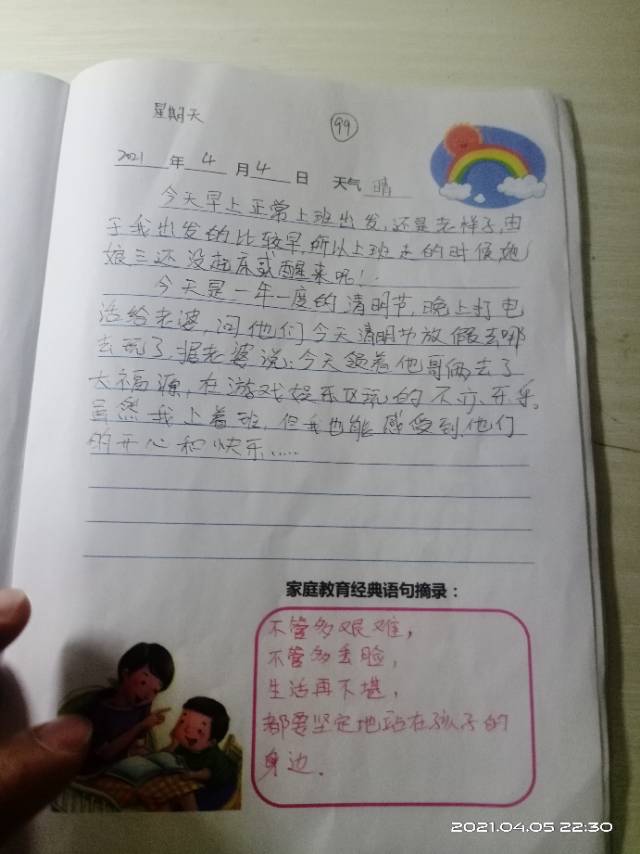 星期天
99
2021年4月4日 天气 晴
今天早上正常上班出发,还是老样子,由
于我出发的比较早,所以上班走的时候,她
娘三还没起床或醒来呢!
今天是一年一度的清明节,晚上打电
话给老婆,问他们今天清明节放假去哪
去玩了,据老婆说:今天领着他哥俩去了
大福源,在游戏娱乐区玩的不亦乐乎。
虽然我上着班,但我也能感受到他们
的开心和快乐.....
家庭教育经典语句摘录:
不管多艰难,
不管多丢脸,
生活再不堪,
都要坚定地站在孩子的
身边.
2021.04.05 22:30